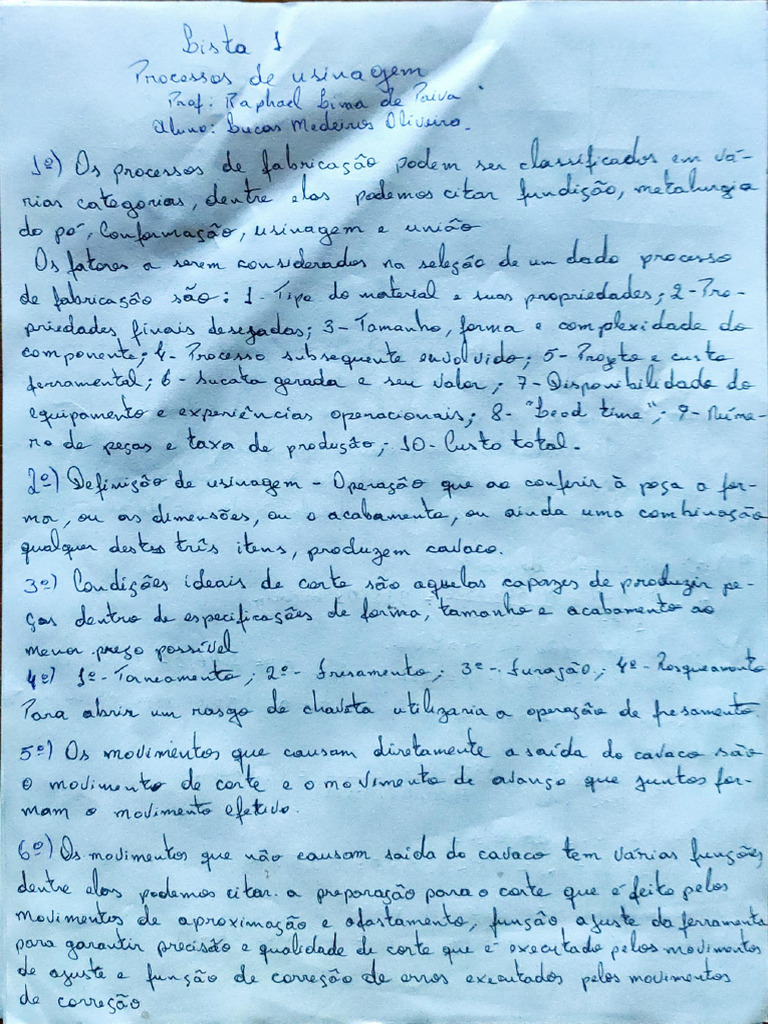 Lista 1
Processos de usinagem
Prof: Raphael Lima de Paiva
Aluno: Lucas Medeiros Oliveira.
1º) Os processos de fabricação podem ser classificados em vá-
rias categorias, dentre elas podemos citar fundição, metalurgia
do pó, Conformação, usinagem e união
Os fatores a serem considerados na seleção de um dado processo
de fabricação são: 1- Tipo do material e suas propriedades; 2- Pro-
priedades finais desejadas; 3- Tamanho, forma e complexidade do
componente; 4- Processo subsequente envolvido; 5- Projeto e custo
ferramental; 6- sucata gerada e seu valor; 7- Disponibilidade do
equipamento e experiências operacionais; 8- "Lead time"; 9- Núme-
ro de peças e taxa de produção; 10- Custo total.
2º) Definição de usinagem - Operação que ao conferir à peça a for-
ma, ou as dimensões, ou o acabamento, ou ainda uma combinação
qualquer destes três itens, produzem cavaco.
3º) Condições ideais de corte são aquelas capazes de produzir pe-
ças dentro de especificações de forma, tamanho e acabamento ao
menor preço possível
4º) 1º- Torneamento; 2º- Fresamento; 3º- Furação; 4º- Rosqueamento
Para abrir um rasgo de chaveta utilizaria a operação de fresamento.
5º) Os movimentos que causam diretamente a saída do cavaco são
o movimento de corte e o movimento de avanço que juntos for-
mam o movimento efetivo.
6º) Os movimentos que não causam saída do cavaco tem várias funções,
dentre elas podemos citar: a preparação para o corte que é feito pelos
movimentos de aproximação e afastamento, função ajuste da ferramenta
para garantir precisão e qualidade de corte que é executado pelos movimentos
de ajuste e função de correção de erros executados pelos movimentos
de correção